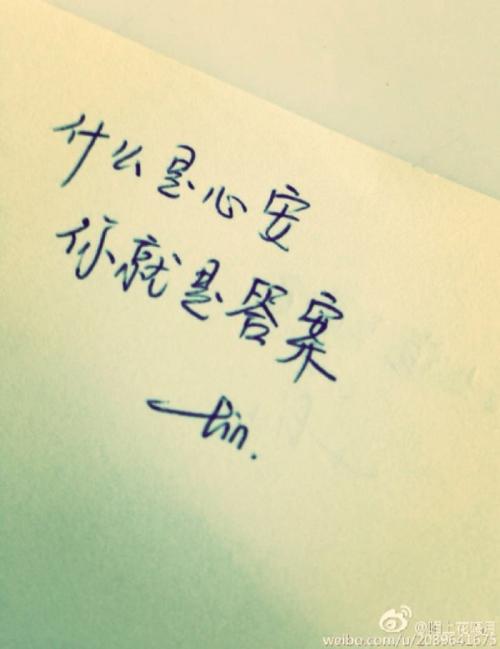 什么是心安
你就是答案
—lin.
weibo.com/u/2089641675